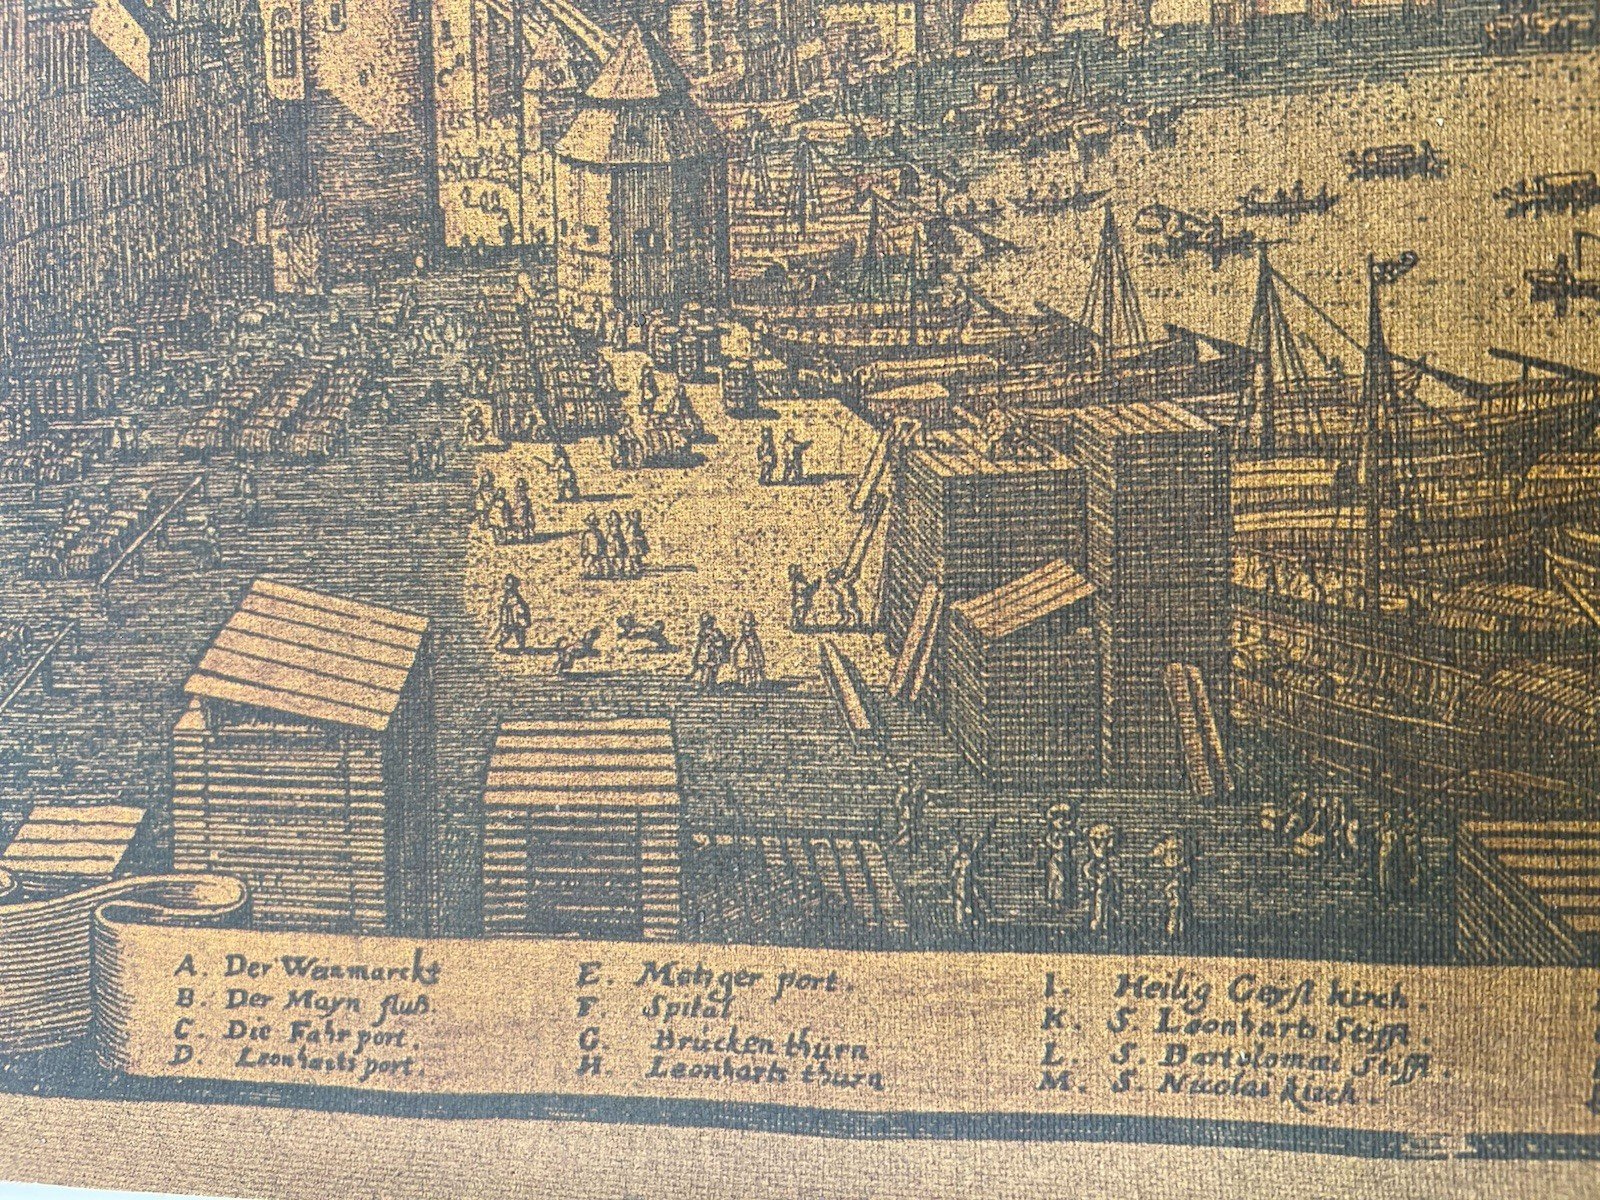 A. Der Weinmarckt
B. Der Mayn fluß.
C. Die Fahr port.
D. Leonharts port.
E. Metzger port.
F. Spital
G. Brücken thurn
H. Leonharts thurn
I. Heilig Geyst kirch.
K. S. Leonharts Stifft.
L. S. Bartolomæi Stifft.
M. S. Nicolai kirch.